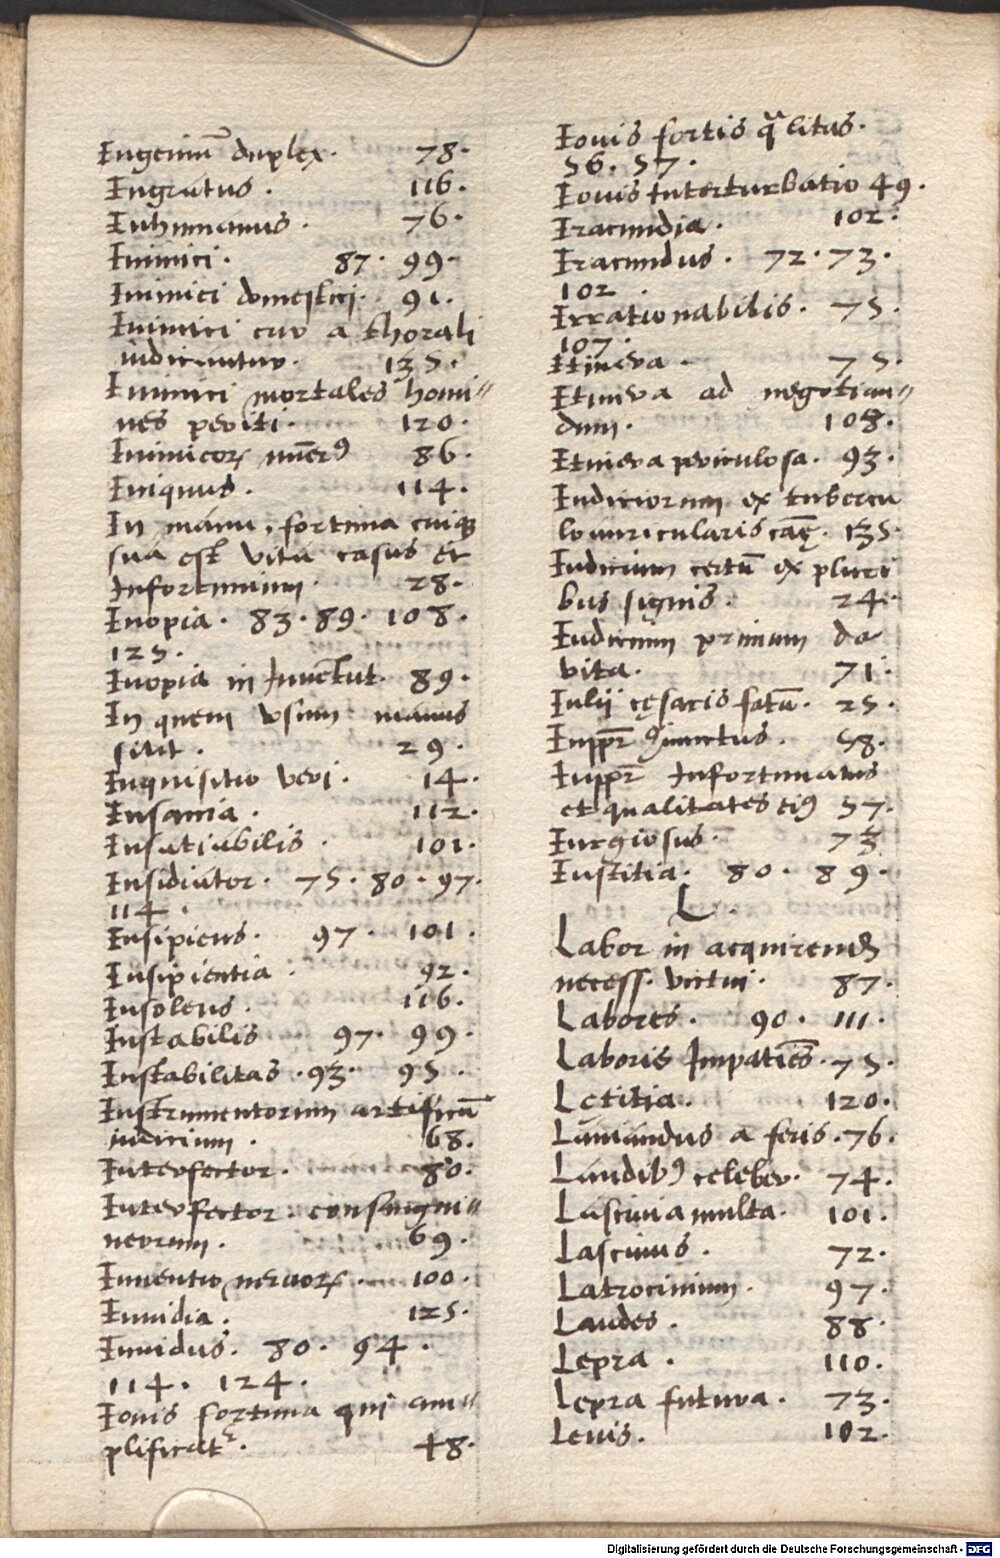 Ingeniū duplex. 78.
Ingratus. 116.
Inhumanus. 76.
Inimici. 87. 99.
Inimici domestici. 91.
Inimici cur a thorali
iudicantur. 135.
Inimici mortales homi„
nes periti. 120.
Inimicoꝝ nūerꝰ 86.
Iniquus. 114.
In manu, fortuna cuiqꝫ
sua est vita casus et
Infortunium. 28.
Inopia. 83. 89. 108.
125.
Inopia in Iuuētut. 89.
In quem vsum manus
sint. 29.
Inquisitio veri. 14.
Insania. 112.
Insatiabilis. 101.
Insidiator. 75. 80. 97.
114.
Insipiens. 97. 101.
Insipientia. 92.
Insolens. 116.
Instabilis 97. 99.
Instabilitas. 93. 95.
Instrumentorum artificū
iudicium. 68.
Interfector. 80.
Interfector consangui„
neorum. 69.
Inuentio neruoꝝ. 100.
Inuidia. 125.
Inuidus. 80. 94.
114. 124.
Iouis fortuna qui am„
plificat. 48.
Iouis fortis qᵃlitas.
56. 57.
Iouis Interturbatio 49.
Iracundia. 102.
Iracundus. 72. 73.
102.
Irrationabilis. 75.
107.
Itinera. 75.
Itinera ad negotian„
dum. 108.
Itinera periculosa. 93.
Iudiciorum ex tubercu
lo auricularis caē. 135.
Iudicium certū ex pluri
bus signis. 24.
Iudicium primum de
vita. 71.
Iulij cęsaris fatū. 25.
Iuppr̄ ꝯiunctus. 58.
Iuppr̄ Infortunatus
et qualitates eiꝰ 57.
Iurgiosus. 73
Iustitia. 80. 89.
L.
Labor in acquirendis
necess. victui. 87.
Labores. 90. 111.
Laboris Impatiēs. 75.
Lętitia. 120.
Laniandus a feris. 76.
Laudibꝰ celeber. 74.
Lasciuia multa. 101.
Lasciuus. 72.
Latrocinium. 97.
Laudes. 88.
Lepra. 110.
Lepra futura. 73.
Leuis. 102.
Digitalisierung gefördert durch die Deutsche Forschungsgemeinschaft - DFG